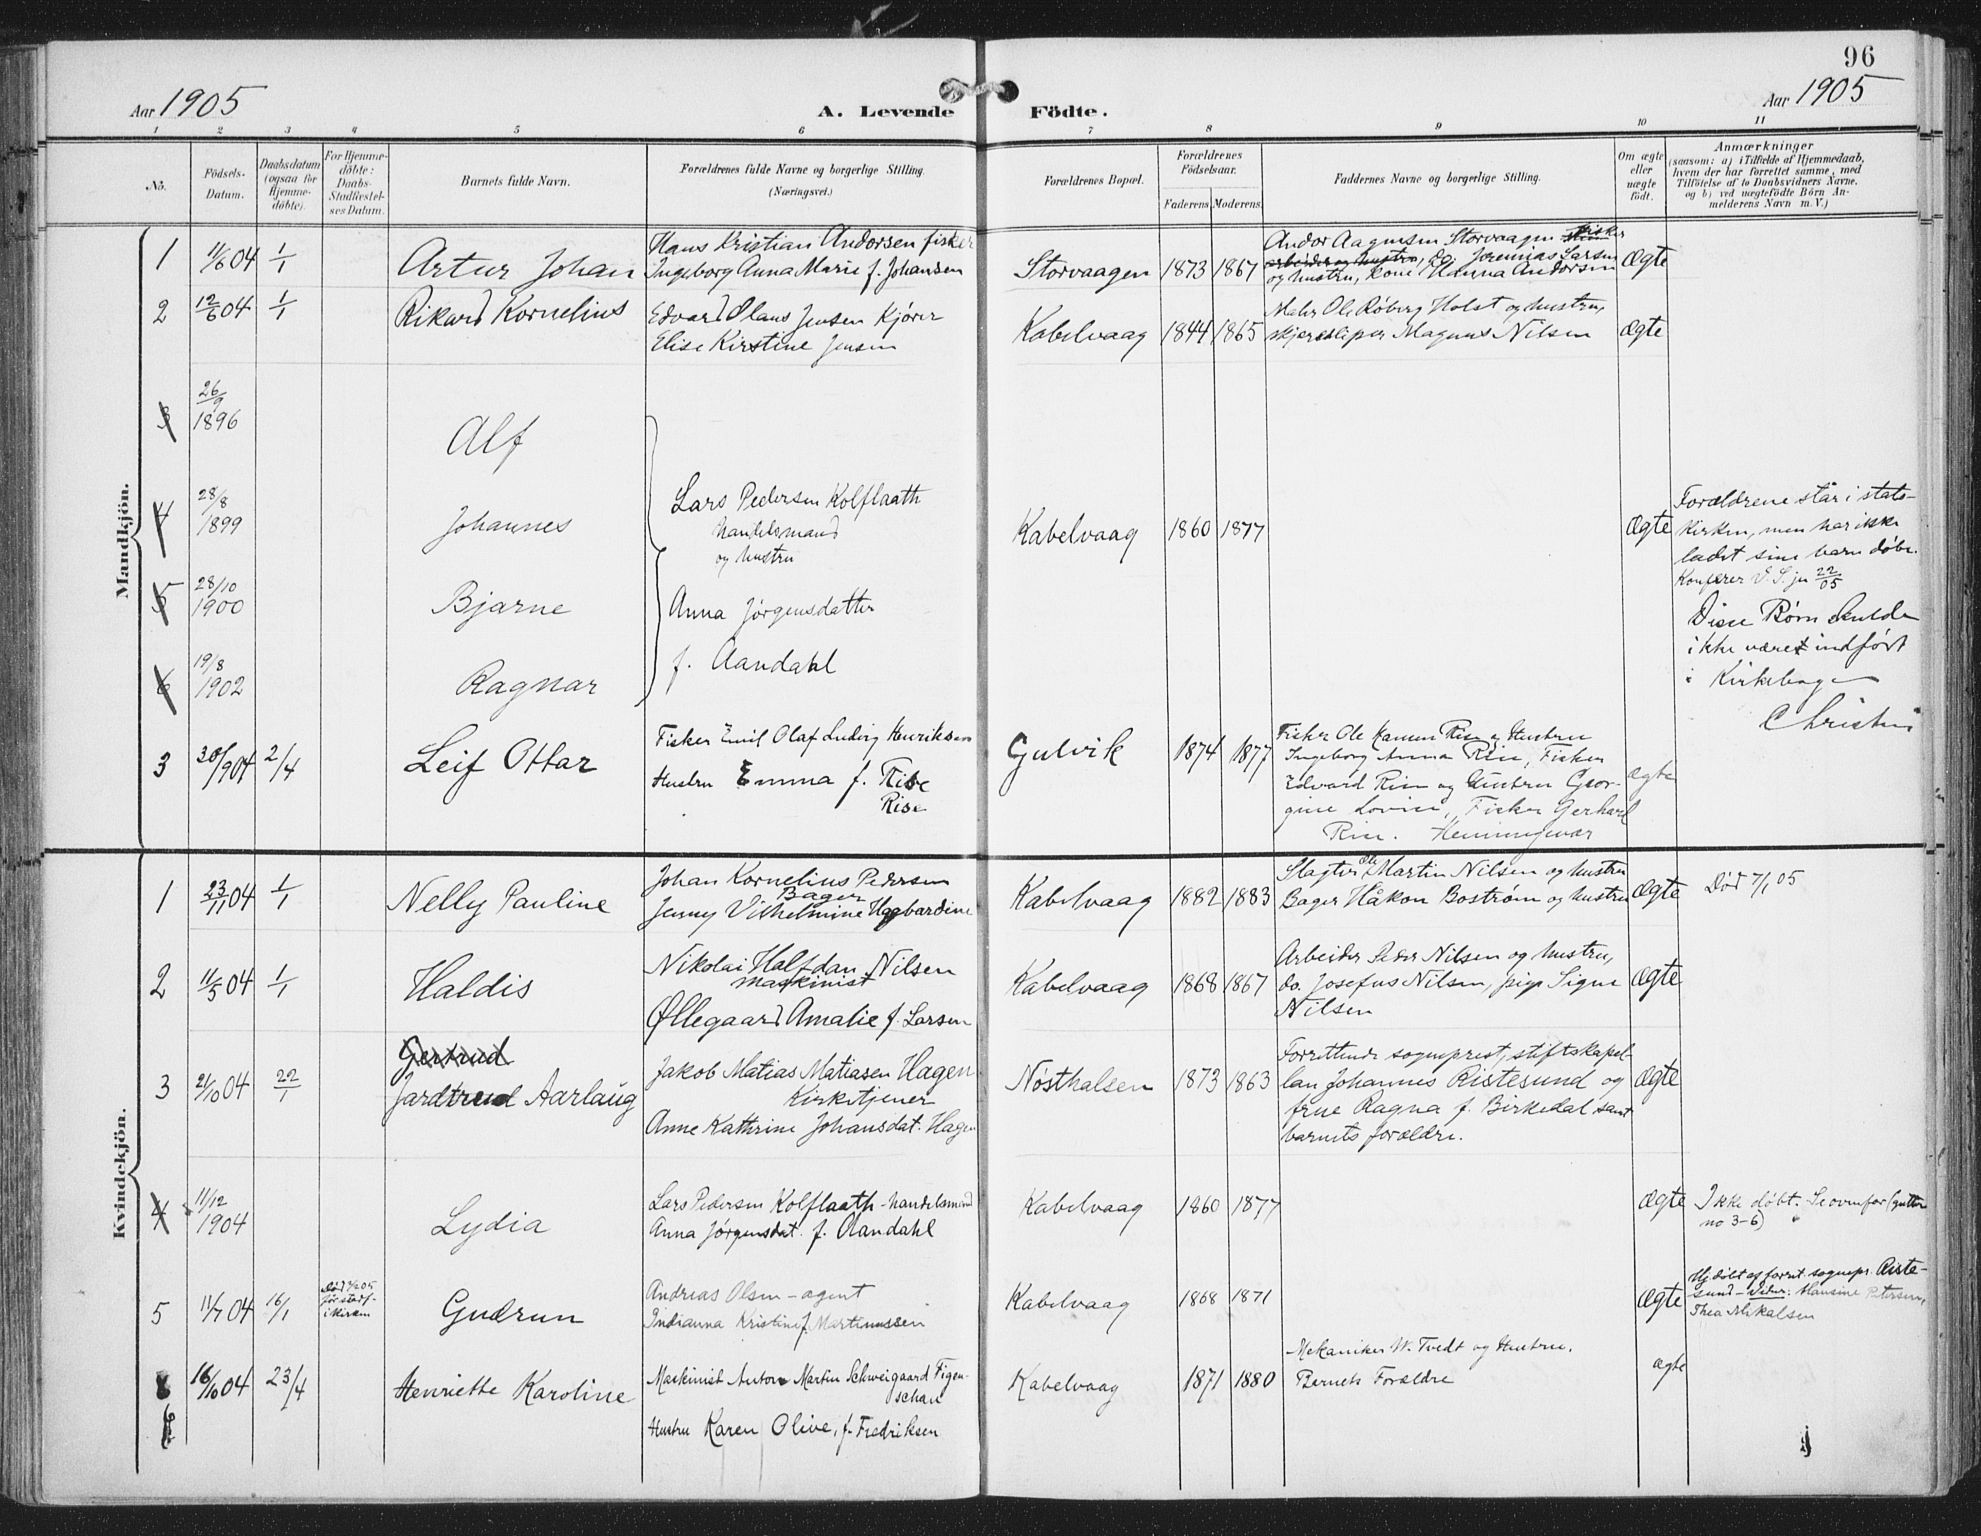 96
Aar 1905
A. Levende Födte.
Aar 1905
1 2 3 4 5 6 7 8 9 10 11
No.
Födsels-
Datum.
Daabsdatum
(ogsaa for
Hjemme-
döbte).
For Hjemme-
döbte:
Daabs-
Stadfæstel-
ses Datum.
Barnets fulde Navn.
Forældrenes fulde Navne og borgerlige Stilling.
(Næringsvei.)
Forældrenes Bopæl.
Forældrenes
Födselsaar.
Faderens. Moderens.
Faddernes Navne og borgerlige Stilling.
Om ægte
eller
uægte
födt.
Anmærkninger
(saasom: a) i Tilfælde af Hjemmedaab,
hvem der har forrettet samme, med
Tilföielse af to Daabsvidners Navne,
og b) ved uægtefödte Börn An-
melderens Navn m. V.)
Mandkjön.
1 11/6 04 1/1 Artur Johan
Hans Kristian Andorsen fisker
Ingeborg Anna Marie f. Johansen
Storvaagen 1873 1867
Andor Aagensen Storvaagen fisker
arbeider og hustru, do. Jeremias Larsen
og hustru, kone Hanna Andorsen
Ægte
2 12/6 04 1/1 Rikard Kornelius
Edvard Olaus Jensen Kjører
Elise Kirstine Jensen
Kabelvaag 1844 1865
Maler Ole Røberg Holst og hustru,
skjærsliper Magnus Nilsen
Ægte
3 26/9 1896 Alf
4 28/8 1899 Johannes
5 28/10 1900 Bjarne
6 19/8 1902 Ragnar
Lars Pedersen Kolflaath
handelsmand
og hustru
Anna Jørgensdatter
f. Aandahl
Kabelvaag 1860 1877
Ægte
Forældrene står i stats-
kirken, men har ikke
ladet sine barn døbe.
Konferer V. S. jn 22/05
Disse Børn skulde
ikke været indført
i Kirkebogen
Christie
3 30/9 04 2/4 Leif Ottar
Fisker Emil Olaf Ludvig Henriksen
Hustru Emma f. Rise
Rise
Gulvik 1874 1877
Fisker Ole Hansen Rise og Hustru
Ingeborg Anna Rise, Fisker
Edvard Rise og Hustru Geor-
gine Lovise, Fisker Gerhard
Rise. Henningsvær
ægte
Kvindekjön.
1 23/11 04 1/1 Nelly Pauline
Johan Kornelius Pedersen
Bager
Jenny Vilhelmine Hagbardine
Kabelvaag 1882 1883
Slagter Ole Martin Nilsen og hustru
Bager Håkon Bostrøm og hustru
Ægte
Død 7/1 05
2 11/5 04 1/1 Haldis
Nikolai Halfdan Nilsen
maskinist
Øllegaard Amalie f. Larsen
Kabelvaag 1868 1867
Arbeider Peder Nilsen og hustru,
do. Josefus Nilsen, pige Signe
Nilsen
Ægte
Gertrud
3 21/10 04 22/1 Jardtrud Aarlaug
Jakob Matias Matiasen Hagen
Kirketjener
Anne Kathrine Johansdat. Hagen
Nøsthalsen 1873 1863
Forrettende sogneprest, stiftskapel-
lan Johannes Ristesund og
frue Ragna f. Birkedal samt
barnets forældre.
Ægte
4 11/12 1904 Lydia
Lars Pedersen Kolflaath - handelsmand
Anna Jørgensdat. f. Aandahl
Kabelvaag 1860 1877
Ægte
Ikke døbt. Se ovenfor (gutter
no 3-6)
5 11/7 04 16/1
før stadf.
i kirken
Gudrun
Andreas Olsen - agent
Indianna Kristine f. Martinussen
Kabelvaag 1868 1871
Ægte
Hj.døbt af forret. sognepr. Riste-
sund - Vidner: Hansine Petersen,
Thea Mikalsen
6 16/10 04 23/4 Henriette Karoline
Maskinist Anton Martin Schweigaard Figen-
schau
Hustru Karen Olive, f. Fredriksen
Kabelvaag 1871 1880
Mekaniker W. Tvedt og Hustru.
Barnets Forældre
ægte